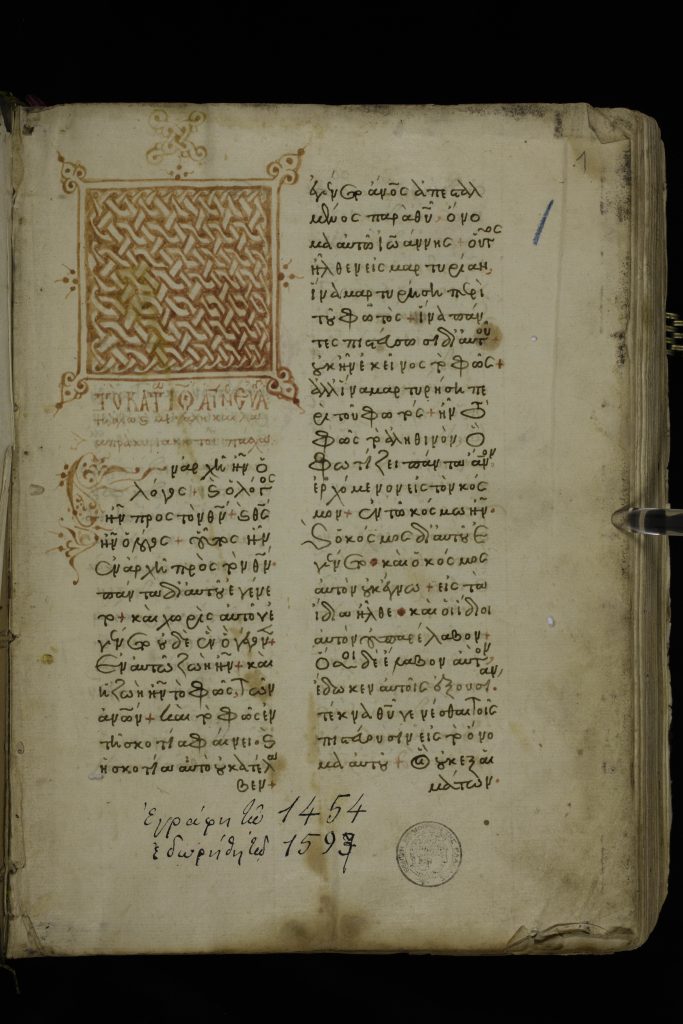 1
ΤΟ ΚΑΤ ΙΩ ΑΓ ΕΥΑ
Ἐν ἀρχῆ ἦν ὁ
λόγος + ϗ ὁ λόγος
ἦν πρὸς τὸν θν + ϗ θς
ἦν ὁ λόγος + οὗτος ἦν
ἐν ἀρχῆ πρὸς τὸν θν.
πάντα δι αὐτοῦ ἐγένε
το + καὶ χωρὶς αὐτοῦ ἐ
γένετο οὐδὲ ἓν ὃ γέγονεν +
Ἐν αὐτῶ ζωὴ ἦν + καὶ
ἡ ζωὴ ἦν τὸ φῶς τῶν
ἀνων + καὶ τὸ φῶς ἐν
τῆ σκοτία φαίνει. ϗ
ἡ σκοτία αὐτὸ οὐ κατέλα
βεν +
ἐγένετο ἀνος ἀπεσταλ
μένος παρὰ θυ. ὄνο
μα αὐτῶ ἰωάννης + οὗτος
ἦλθεν εἰς μαρτυρίαν,
ἵνα μαρτυρήση περὶ
τοῦ φωτὸς + ἵνα πάν
τες πιστεύσωσι δι αὐτοῦ
οὐκ ἦν ἐκεῖνος τὸ φῶς +
ἀλλ ἵνα μαρτυρήση πε
ρὶ τοῦ φωτός + ἦν τὸ
φῶς τὸ ἀληθινὸν. ὃ
φωτίζει πάντα ἀνον
ἐρχόμενον εἰς τὸν κόσ
μον + ἐν τῶ κόσμω ἦν.
ϗ ὁ κόσμος δι αὐτοῦ ἐ
γένετο. καὶ ὁ κόσμος
αὐτὸν οὐκ ἔγνω + εἰς τὰ
ἴδια ἦλθε. καὶ οἱ ἴδιοι
αὐτὸν οὐ παρέλαβον +
Ὅσοι δὲ ἔλαβον αὐτὸν,
ἔδωκεν αὐτοῖς ἐξουσίαν.
τέκνα θυ γενέσθαι τοῖς
πιστεύουσιν εἰς τὸ ὄνο
μα αὐτοῦ + Οἳ οὐκ ἐξ αἱ
μάτων.
ἐγράφη τῶ 1454
ἐδωρήθη τῶ 1593